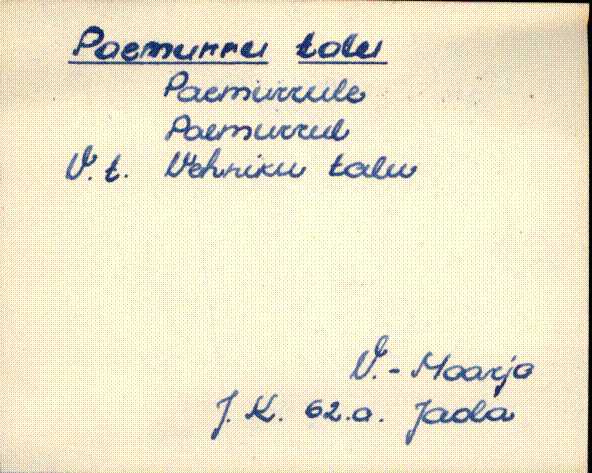 Paemurru talu
Paemurrule
Paemurrul
V. t. Vehriku talu
V.-Maarja
J. K. 62.a. Jada